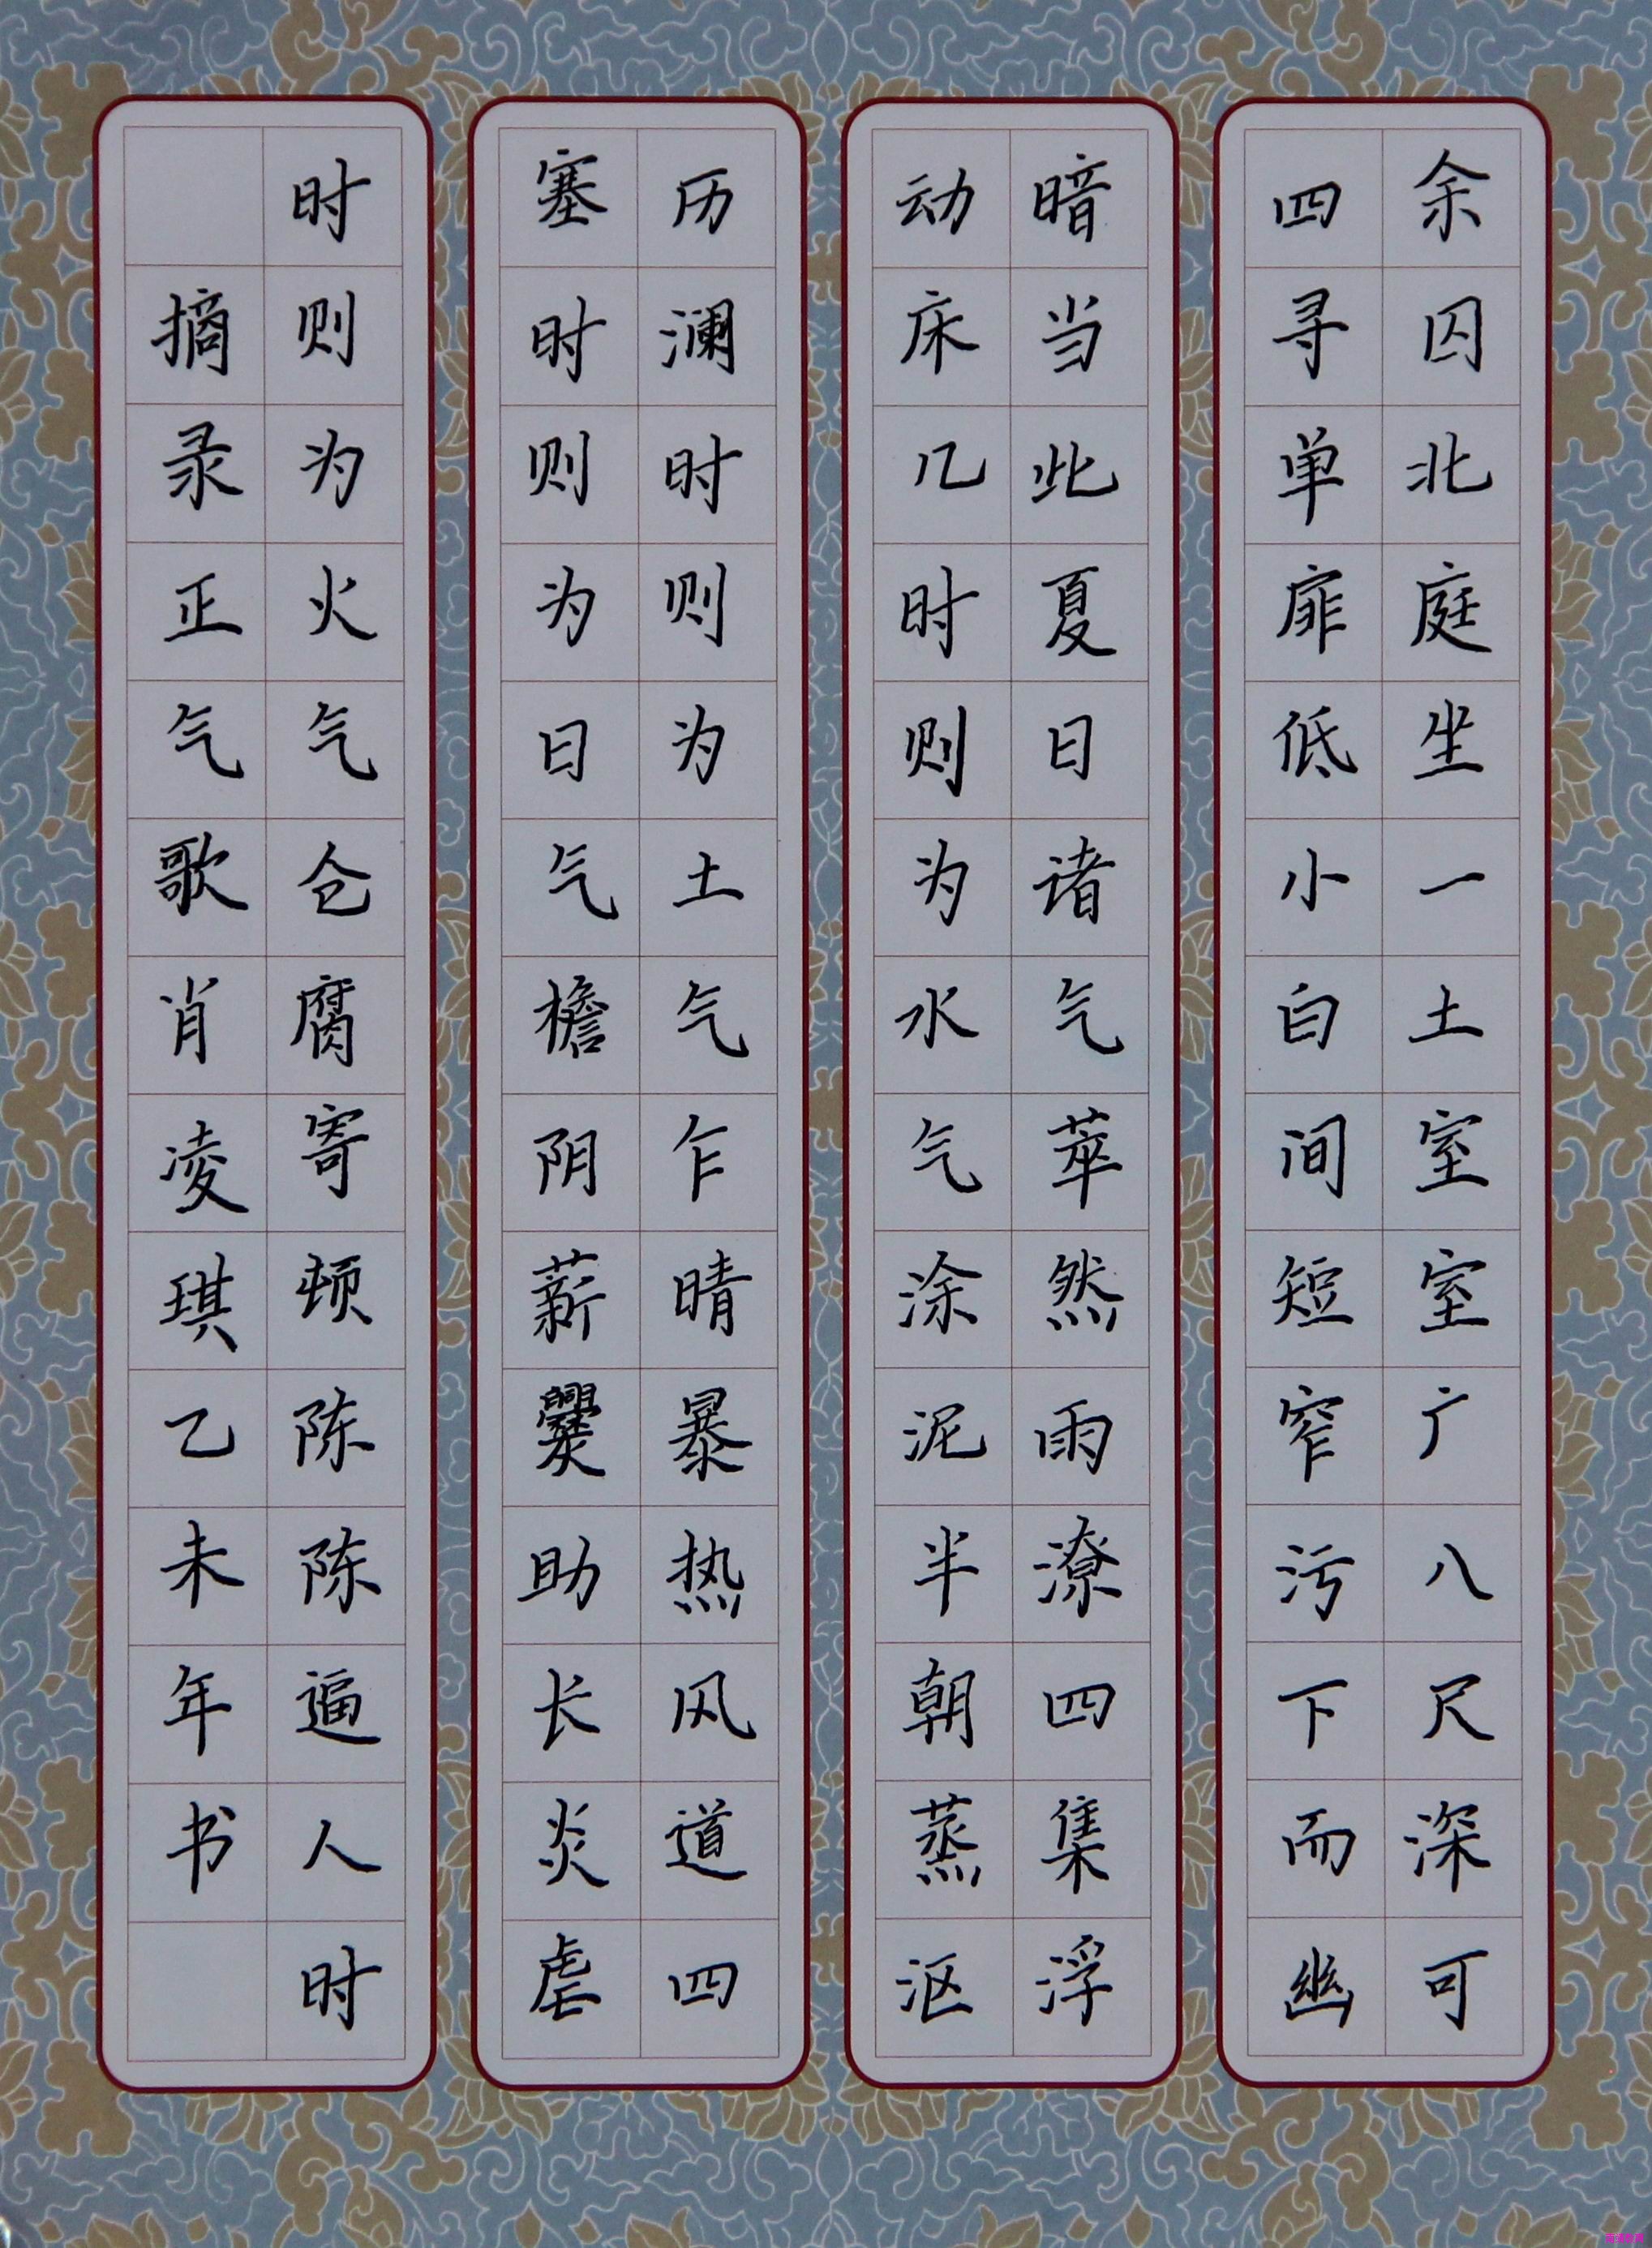 余囚北庭坐一土室室广八尺深可
四寻单扉低小白间短窄污下而幽
暗当此夏日诸气萃然雨潦四集浮
动床几时则为水气涂泥半朝蒸沤
历澜时则为土气乍晴暴热风道四
塞时则为日气檐阴薪爨助长炎虐
时则为火气仓腐寄顿陈陈逼人时
摘录正气歌肖凌琪乙未年书